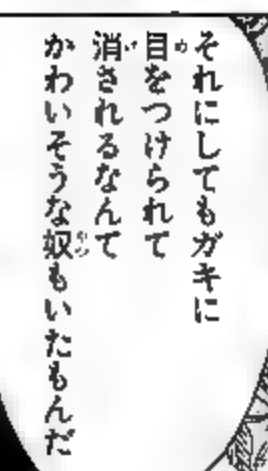 それにしてもガキに
目をつけられて
消されるなんて
かわいそうな奴もいたもんだ